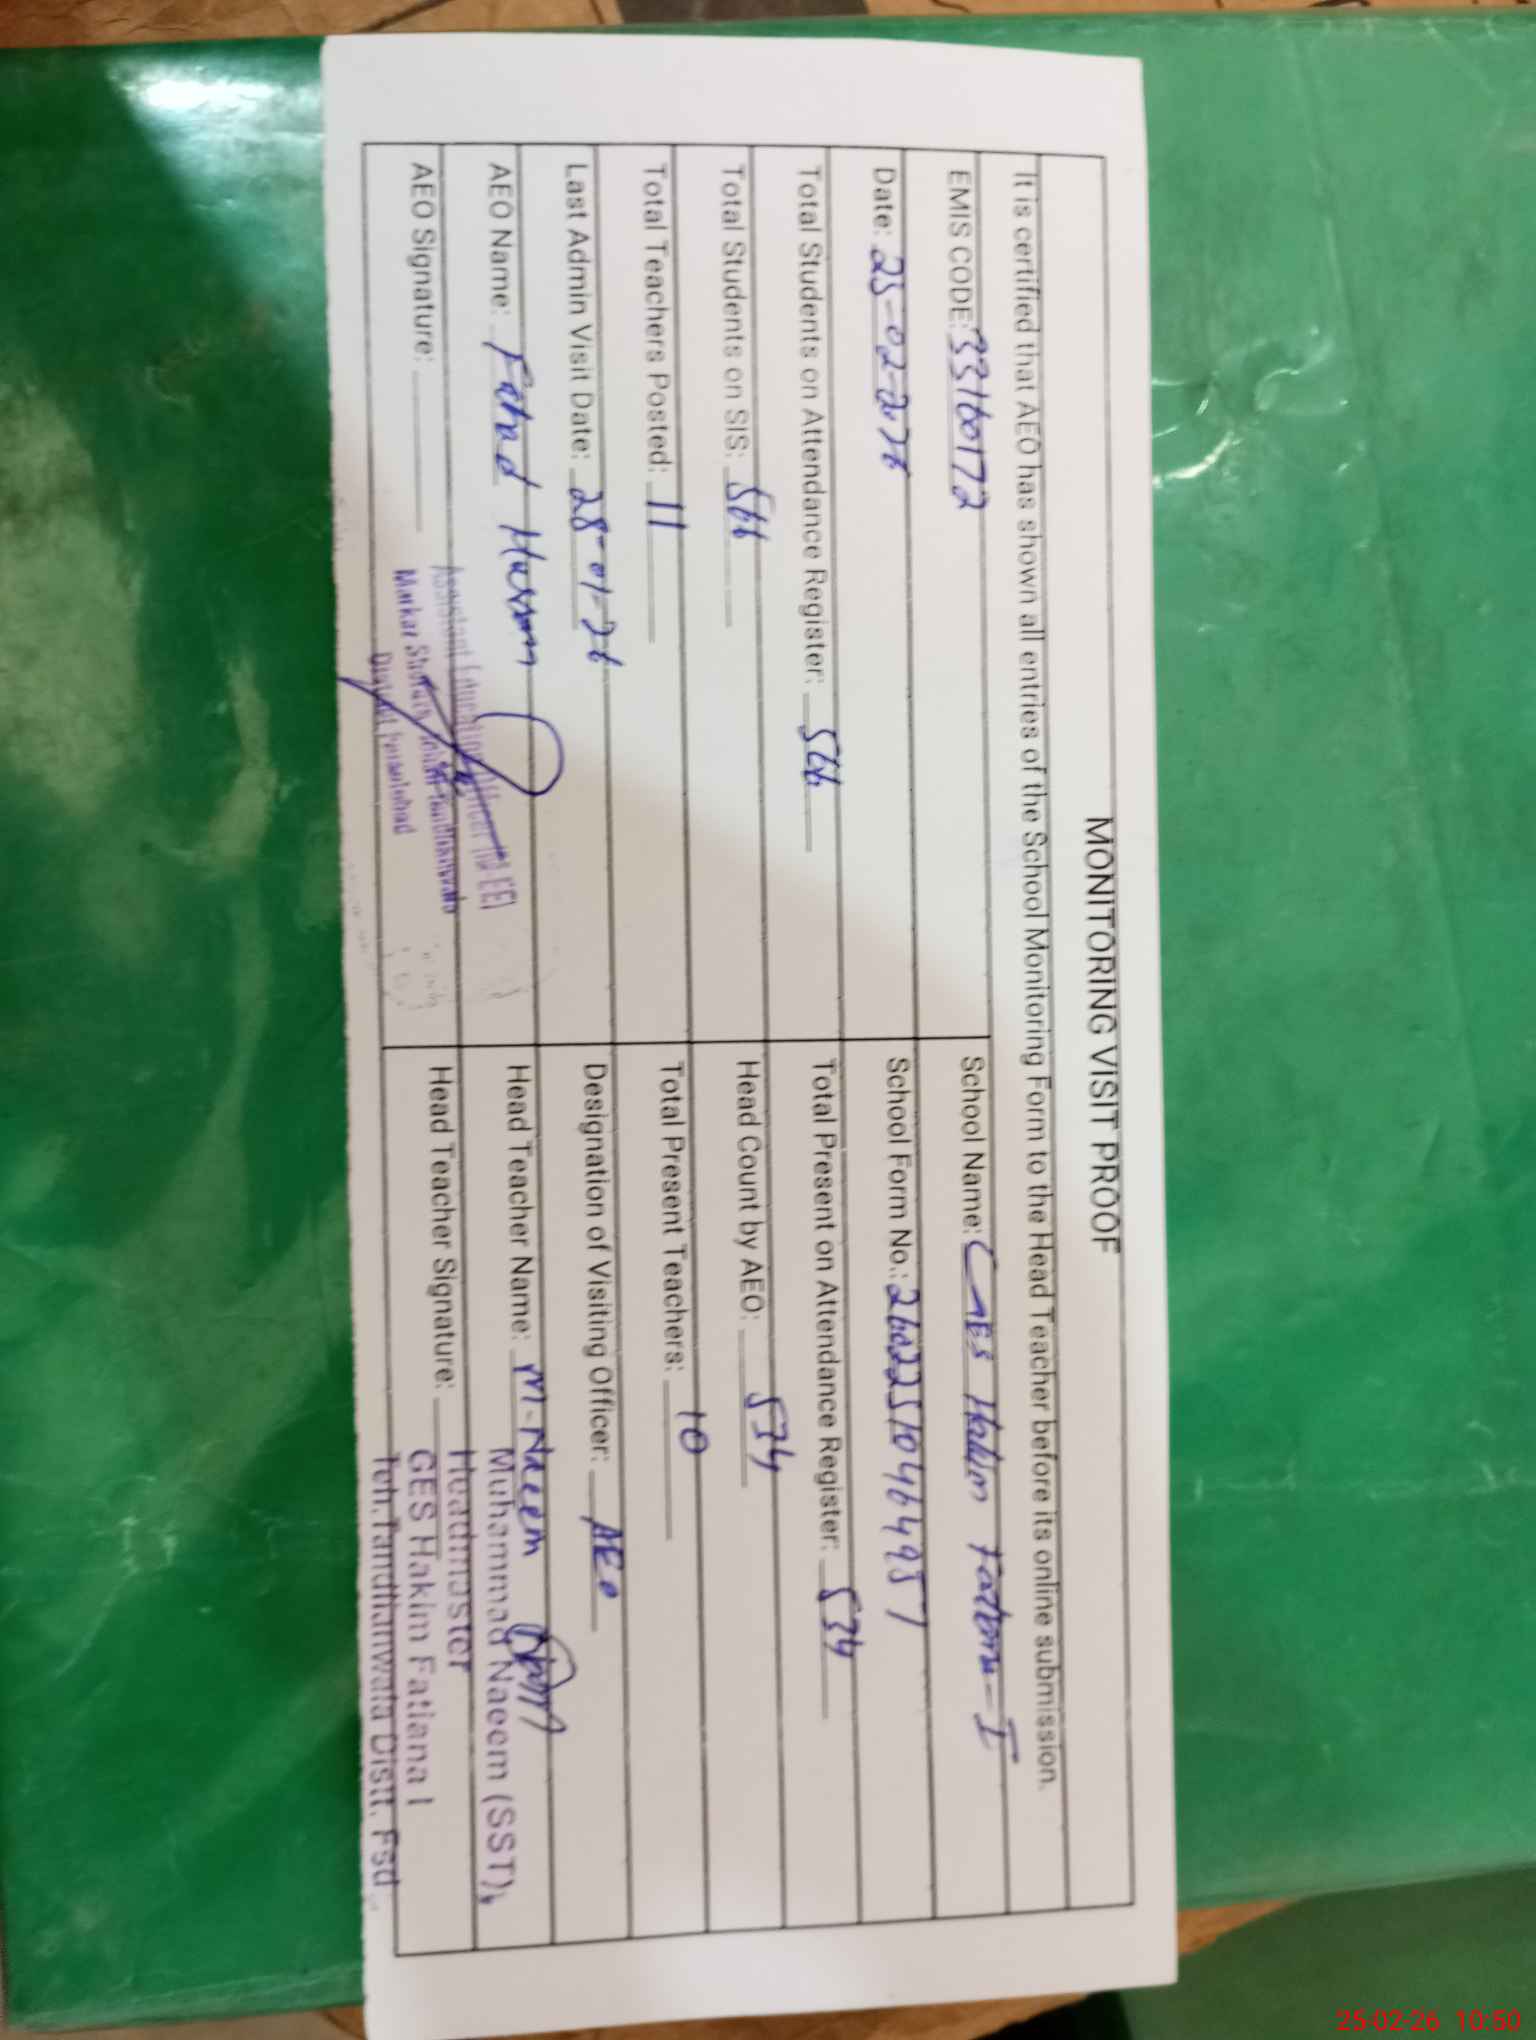 MONITORING VISIT PROOF
It is certified that AEO has shown all entries of the School Monitoring Form to the Head Teacher before its online submission.
EMIS CODE: 33160172 School Name: GES Hakim Fatiana-I
Date: 25-02-2026 School Form No.: 260225104649957
Total Students on Attendance Register: 566 Total Present on Attendance Register: 534
Total Students on SIS: 566 Head Count by AEO: 534
Total Teachers Posted: 11 Total Present Teachers: 10
Last Admin Visit Date: 28-01-26 Designation of Visiting Officer: AEO
AEO Name: Fahad Hassan Head Teacher Name: M-Naeem
AEO Signature: Head Teacher Signature:
Assistant Education Officer (M-EE)
Markaz Tandlianwala
District Faisalabad
Muhammad Naeem (SST),
Headmaster
GES Hakim Fatiana I
Teh.Tandlianwala Distt. Fsd
25-02-26 10:50